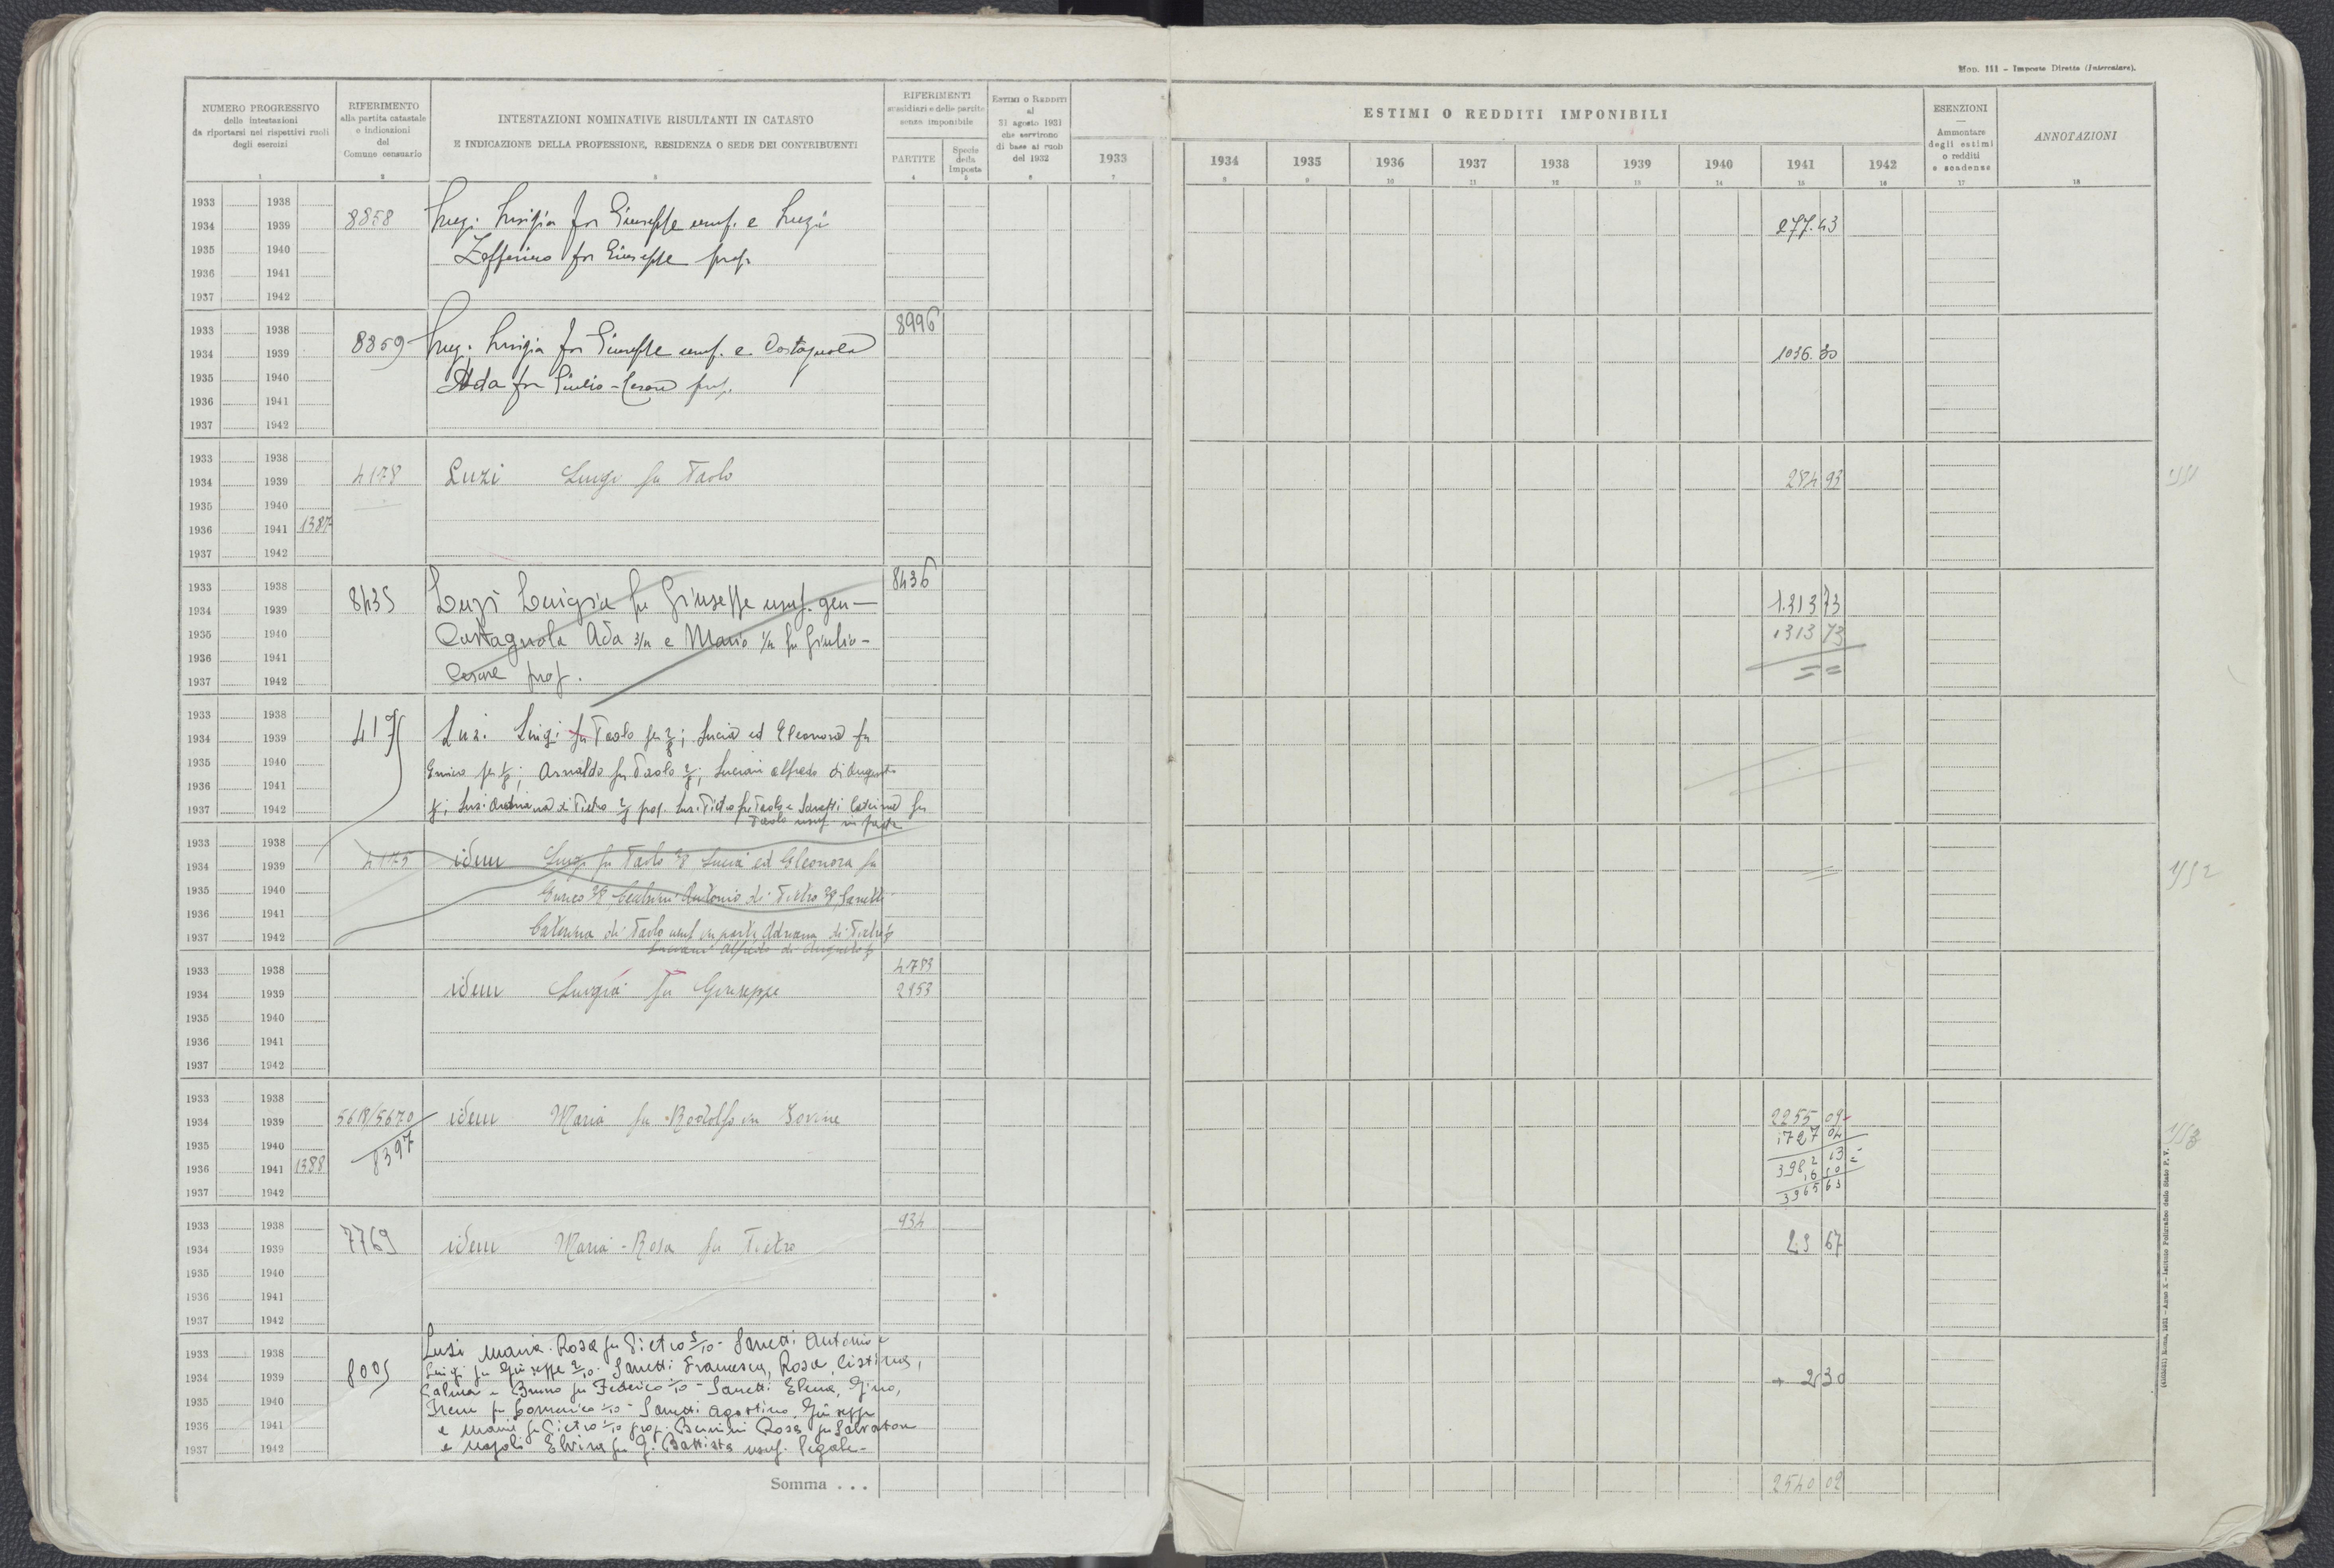 Mod. 111 - Imposte Dirette (Intercalare).
NUMERO PROGRESSIVO
delle intestazioni
da riportarsi nei rispettivi ruoli
degli esercizi
1
RIFERIMENTO
alla partita catastale
e indicazioni
del
Comune censuario
2
INTESTAZIONI NOMINATIVE RISULTANTI IN CATASTO
E INDICAZIONE DELLA PROFESSIONE, RESIDENZA O SEDE DEI CONTRIBUENTI
3
RIFERIMENTI
sussidiari e delle partite
senza imponibile
PARTITE
4
Specie
della
Imposta
5
ESTIMI O REDDITI
al
31 agosto 1931
che servirono
di base ai ruoli
del 1932
6
1933
7
ESTIMI O REDDITI IMPONIBILI
1934 1935 1936 1937 1938 1939 1940 1941 1942
8 9 10 11 12 13 14 15 16
ESENZIONI
Ammontare
degli estimi
o redditi
e scadenze
17
ANNOTAZIONI
18
1933 1938
1934 1939 8858 Luzi Luigia fu Giuseppe usuf. e Luzi 277.43
1935 1940 Zefferino fu Giuseppe prop.
1936 1941
1937 1942
1933 1938 8996
1934 1939 8859 Luzi Luigia fu Giuseppe usuf. e Castagnola 1036.30
1935 1940 Ada fu Giulio-Cesare prop.
1936 1941
1937 1942
1933 1938
1934 1939 4178 Luzi Luigi fu Paolo 284 93
1935 1940
1936 1941 1387
1937 1942
1933 1938 8436
1934 1939 8435 Luzi Luigia fu Giuseppe usuf. gen- 1.313 73
1935 1940 Castagnola Ada 3/4 e Mario 1/4 fu Giulio- 1313 73
1936 1941 Cesare prop. = =
1937 1942
1933 1938
1934 1939 Luzi Luigi fu Paolo per; Lucia ed Eleonora fu
1935 1940 Enrico per; Arnaldo fu Paolo; Luciani Alfredo di Augusto
1936 1941
1937 1942 Luzi Adriana di Pietro prop. Luzi Pietro fu Paolo e Sanetti Caterina fu
Paolo usuf. in parte
1933 1938
1934 1939 4175 idem Luigi fu Paolo Lucia ed Eleonora fu
1935 1940 Enrico Antonio di Pietro Sanetti
1936 1941
1937 1942 Caterina di Paolo usuf in parte Adriana di Pietro
Luciani Alfredo di Augusto
1933 1938 4783
1934 1939 idem Luigia fu Giuseppe 2953
1935 1940
1936 1941
1937 1942
1933 1938
1934 1939 5618/5670 idem Maria fu Rodolfo in Iovine 2255 09
1935 1940 8397 1727 04
1936 1941 1388 3982 13
16 50
1937 1942 3965 63
1933 1938 934
1934 1939 7769 idem Maria-Rosa fu Pietro 23 67
1935 1940
1936 1941
1937 1942
Luzi Maria-Rosa fu Pietro 5/10 - Sanetti Antonio e
1933 1938 Luigi fu Giuseppe 2/10 - Sanetti Francesca, Rosa, Cistina,
1934 1939 8005 e Bruno fu Federico 1/10 - Sanetti Elena, Gino, 2 30
1935 1940 Irene fu Domenico 1/10 - Sanetti Agostino, Giuseppe
1936 1941 e Maria fu Pietro 1/10 prop. Rosa fu Salvatore
1937 1942 e Napoli Elvira fu G. Battista usuf. legale-
Somma . . . 2540 02
(4105031) Roma, 1931 - Anno X - Istituto Poligrafico dello Stato P. V.